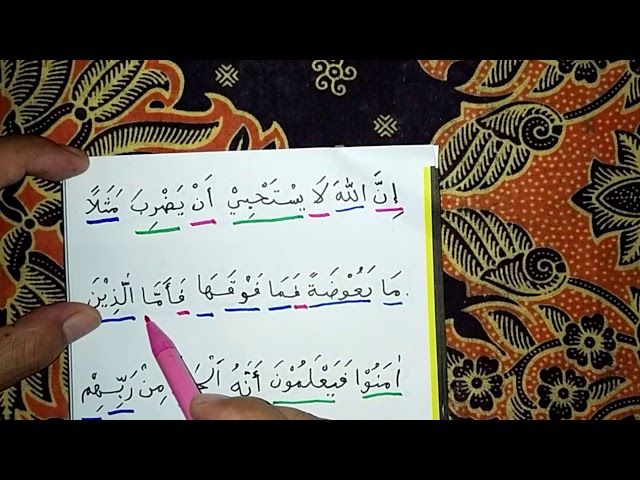 إِنَّ اللّٰهَ لَا يَسْتَحْيِيْ اَنْ يَضْرِبَ مَثَلًا
مَا بَعُوْضَةً فَمَا فَوْقَهَا فَأَمَّا الَّذِيْنَ
اٰمَنُوْا فَيَعْلَمُوْنَ أَنَّهُ مِنْ رَبِّهِمْ